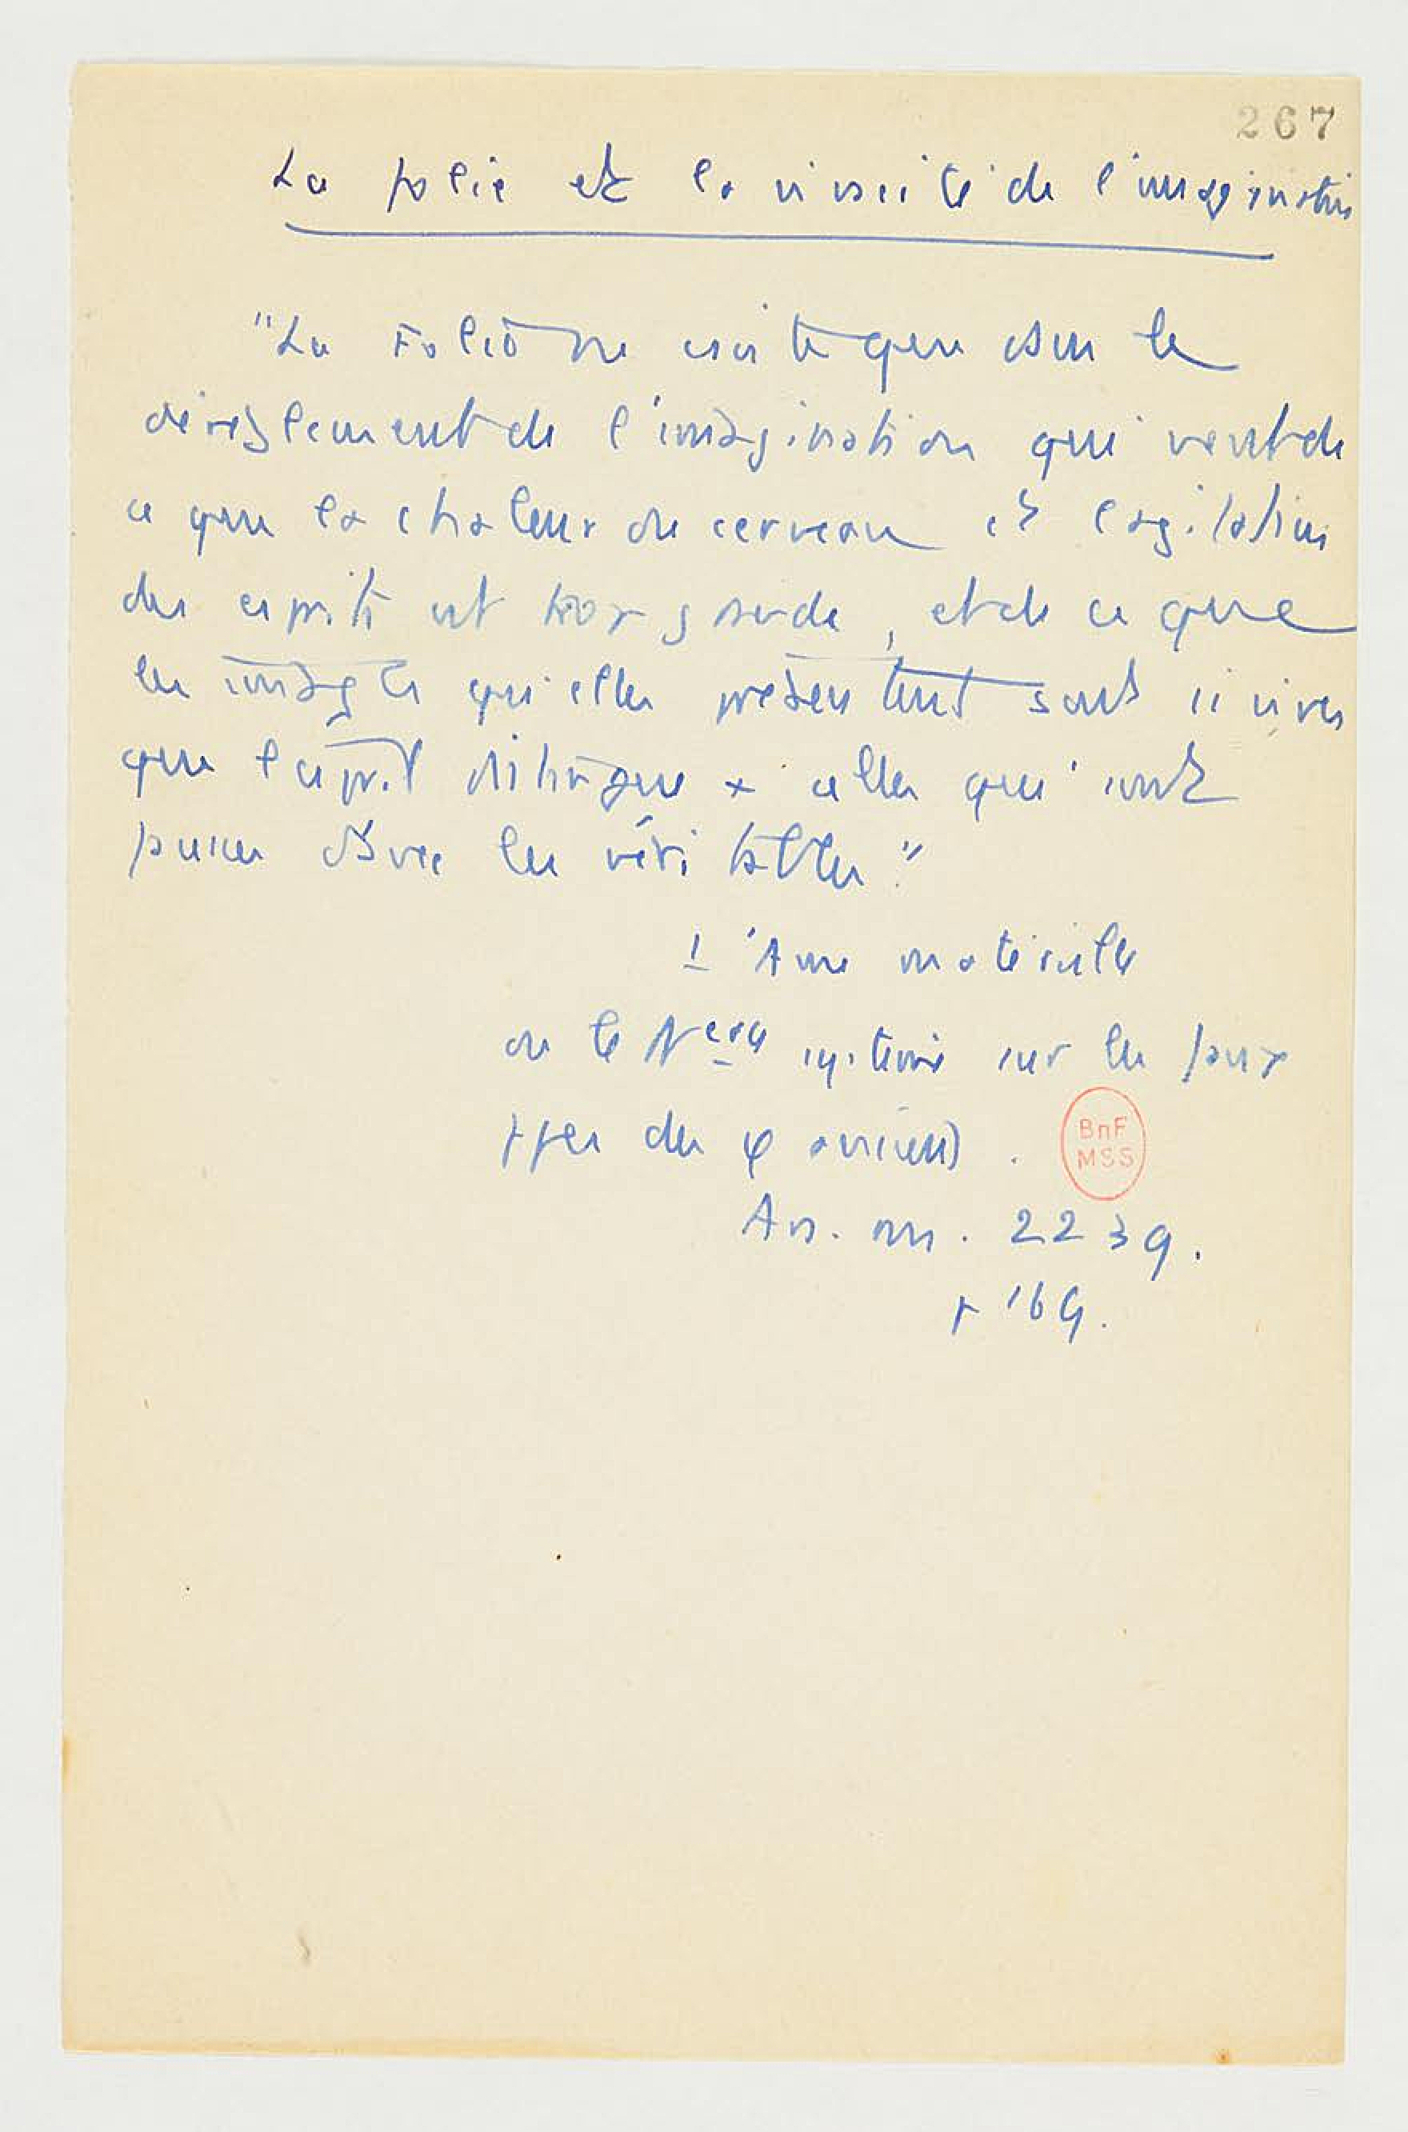 267
La folie et la vivacité de l'imagination
"La Folie ne consiste que dans le
dérèglement de l'imagination qui vient de
ce que la chaleur du cerveau et l'agitation
des esprits est trop grande, et de ce que
les images qu'elles présentent sont si vives
que l'esprit distingue celles qui sont
fausses d'avec les véritables."
L'Ame matérielle
ou le Nveau système sur les faux
des φ anciens).
BnF
MSS
Ars. ms. 2239.
p 169.